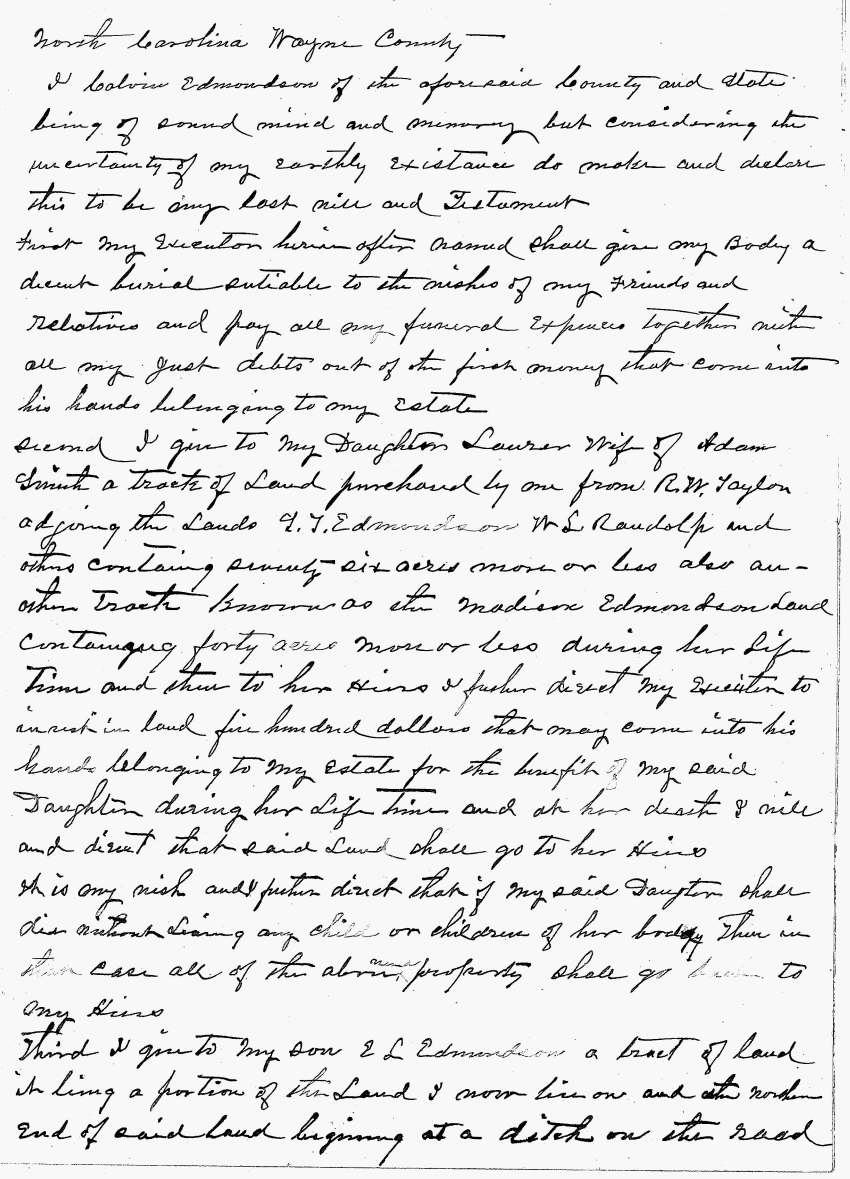 North Carolina Wayne County
I Calvin Edmondson of the aforesaid County and State
being of sound mind and memory but considering the
uncertainty of my Earthly Existance do make and declare
this to be my last will and Testament
First My Executor herin after named shall give my Body a
decent burial sutiable to the wishes of my Friends and
Relatives and pay all my funeral Expences together with
all my Just debts out of the first money that come into
his hands belonging to my Estate
second I give to My Daughter Laurer Wife of Adam
Smith a tract of Land purchased by me from R.W. Taylor
adjoing the Lands T.T. Edmondson W L Randolp and
others containg seventy six acres more or less also an-
other Tract Known as the Madison Edmondson Land
Containgug forty acres More or less during her Life
Time and then to her Hiers I futher direct My Executer to
invest in land five hundred dollars that may come into his
hands belonging to My Estate for the benefit of My said
Daughter during her Life Time and at her death I will
and direct that said Land shall go to her Hiers
It is my wish and I futher direct that if My said Daugter shall
die without Leaving any child or children of her body Then in
that case all of the above named property shall go back to
my Hiers
Third I give to My son E L Edmondson a tract of land
it being a portion of the Land I now live on and the Northern
End of said land begining at a ditch on the road